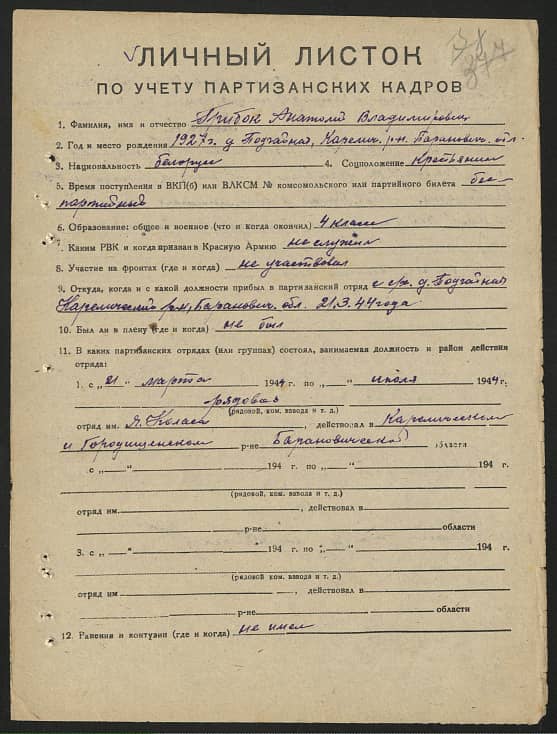 ЛИЧНЫЙ ЛИСТОК
ПО УЧЕТУ ПАРТИЗАНСКИХ КАДРОВ
1. Фамилия, имя и отчество Грибок Анатолий Владимирович
2. Год и место рождения 1927 г. д Подчайная, Карелич. р-н. Баранович. обл.
3. Национальность белорус 4. Соцположение Крестьянин
5. Время поступления в ВКП(б) или ВЛКСМ № комсомольского или партийного билета бес-
партийный
6. Образование: общее и военное (что и когда окончил) 4 класс
7. Каким РВК и когда призван в Красную Армию не служил
8. Участие на фронтах (где и когда) не участвовал
9. Откуда, когда и с какой должности прибыл в партизанский отряд с д. Подчайная
Кареличский р-н, Баранович. обл. 21.3.44 года.
10. Был ли в плену (где и когда) не был
11. В каких партизанских отрядах (или группах) состоял, занимаемая должность и район действия
отряда:
1. с „21" марта 1944 г. по „ " июля 1944 г.
рядовая
(рядовой, ком. взвода и т. д.)
отряд им. Я. Коласа, действовал в Кареличском
и Городищенском р-не Барановичской области
с „ " 194 г. по „ " 194 г.
(рядовой, ком. взвода и т. д.)
отряд им. , действовал в
р-не области
3. с „ " 194 г. по „ " 194 г.
(рядовой, ком. взвода и т. д.)
отряд им , действовал в
р-не области
12. Ранения и контузии (где и когда) не имел